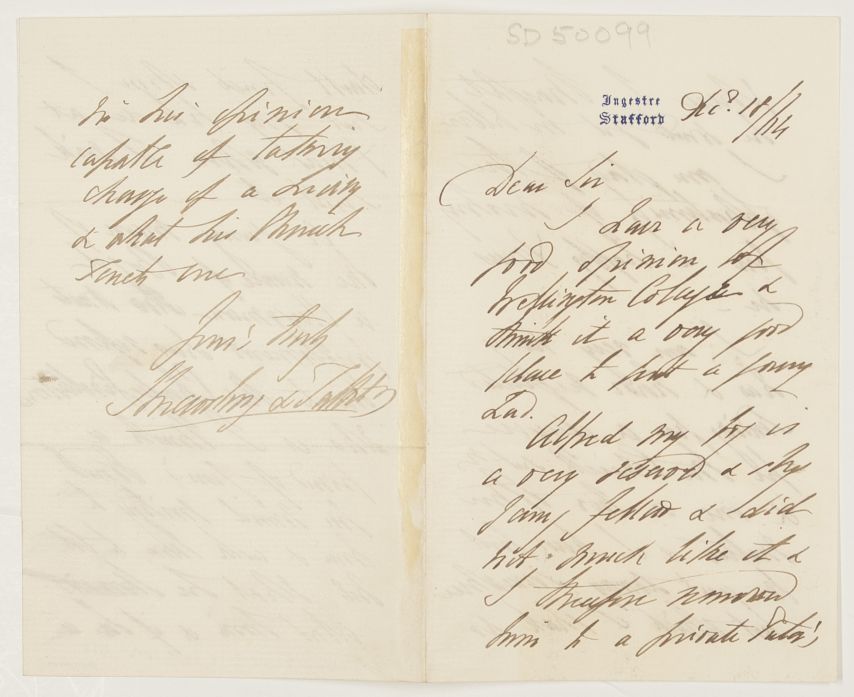 SD 50099
Ingestre
Stafford
Dec. 18/74
Dear Sir
I have a very
good opinion of
Wellington College &
think it a very good
place to put a young
Lad.
Alfred my boy is
a very reserved & shy
young fellow & did
not much like it &
I therefore removed
him to a private Tutor's
in his opinion
capable of taking
charge of a
& what his Church
Yours truly
Shrewsbury & Talbot